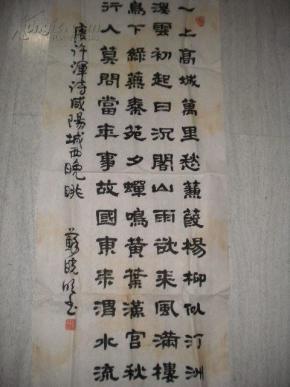 一上高城萬里愁蒹葭楊柳似汀洲
溪雲初起日沉閣山雨欲来風滿樓
鳥下綠蕪秦苑夕蟬鳴黃葉漢宮秋
行人莫問當年事故國東来渭水流
唐許渾詩咸陽城西晚眺